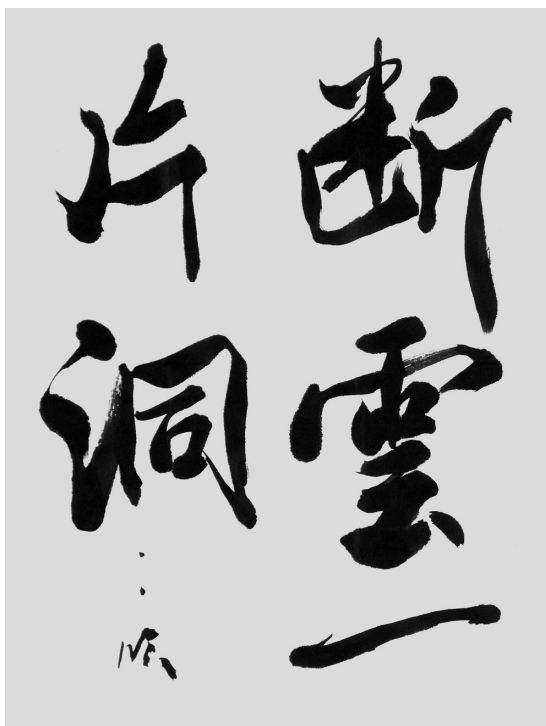 断雲一
片洞